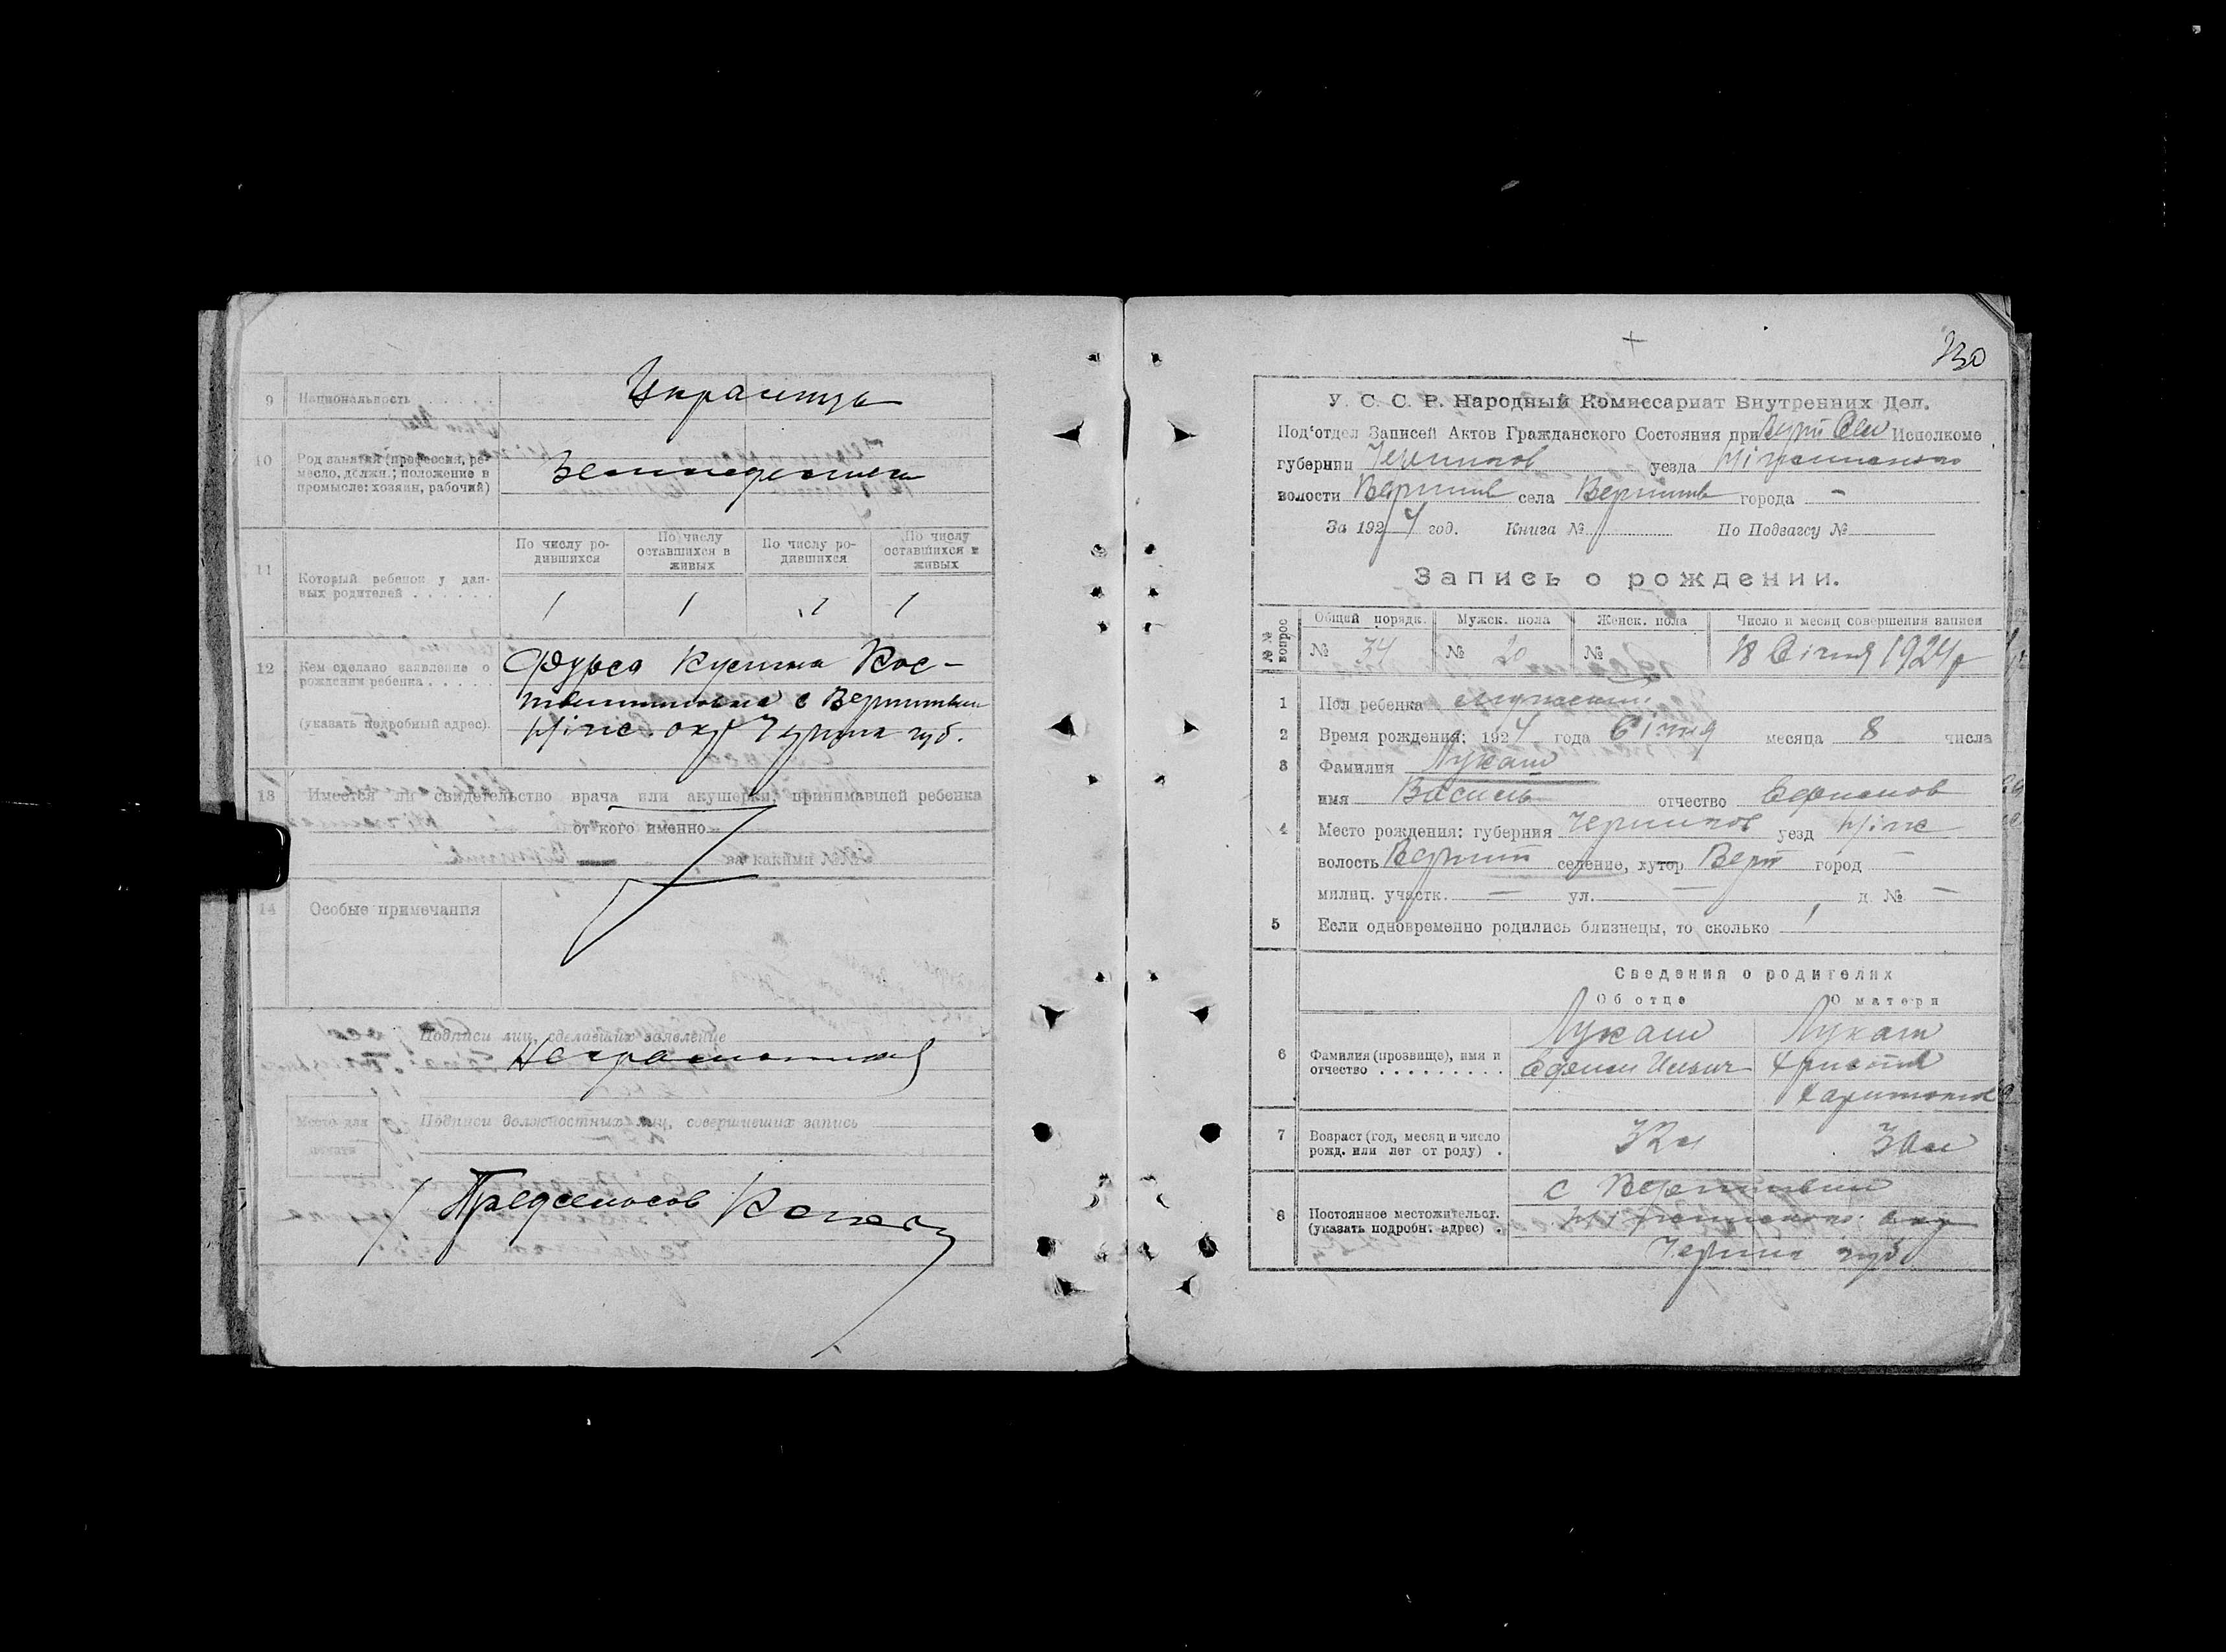 9 Национальность
Украинцы
10 Род занятий (профессия, ре-
месло, должн.; положение в
промысле: хозяин, рабочий)
Земледелием
По числу ро-
дившихся
По числу
оставшихся в
живых
По числу ро-
дившихся
По числу
оставшихся в
живых
11 Который ребенок у дан-
ных родителей
1 1 1 1
12 Кем сделано заявление о
рождении ребенка
(указать подробный адрес).
Фурса Кузьма Кос-
с Вертиевки
Ніжс окр губ.
13 Имеется ли свидетельство врача или акушерки, принимавшей ребенка
от кого именно
за какими №№
14 Особые примечания
Подписи лиц, сделавших заявление
Неграмотный
Место для
печати
Подписи должностных лиц, совершивших запись
Предсельсов
У. С. С. Р. Народный Комиссариат Внутренних Дел.
Под'отдел Записей Актов Гражданского Состояния при Исполкоме
губернии Чернигов уезда Ніженского
волости села города —
За 1924 год. Книга № По Подзагсу №
Запись о рождении.
№№ вопрос
Общей порядк. Мужск. пола Женск. пола Число и месяц совершения записи
№ 34 № 20 № 18 Січня 1924 р
1 Пол ребенка мужской
2 Время рождения: 1924 года Січня месяца 8 числа
3 Фамилия Лукаш
имя Василь отчество
4 Место рождения: губерния Чернигов уезд Ніжс
волость селение, хутор Верт город —
милиц. участк. — ул. — д. № —
5 Если одновременно родились близнецы, то сколько 1
Сведения о родителях
Об отце О матери
6 Фамилия (прозвище), имя и
отчество
Лукаш
Ильич
Лукаш
7 Возраст (год, месяц и число
рожд. или лет от роду)
32 л 30 л
8 Постоянное местожительст.
(указать подробн. адрес)
с Вертиевки
Ніженского окр
губ